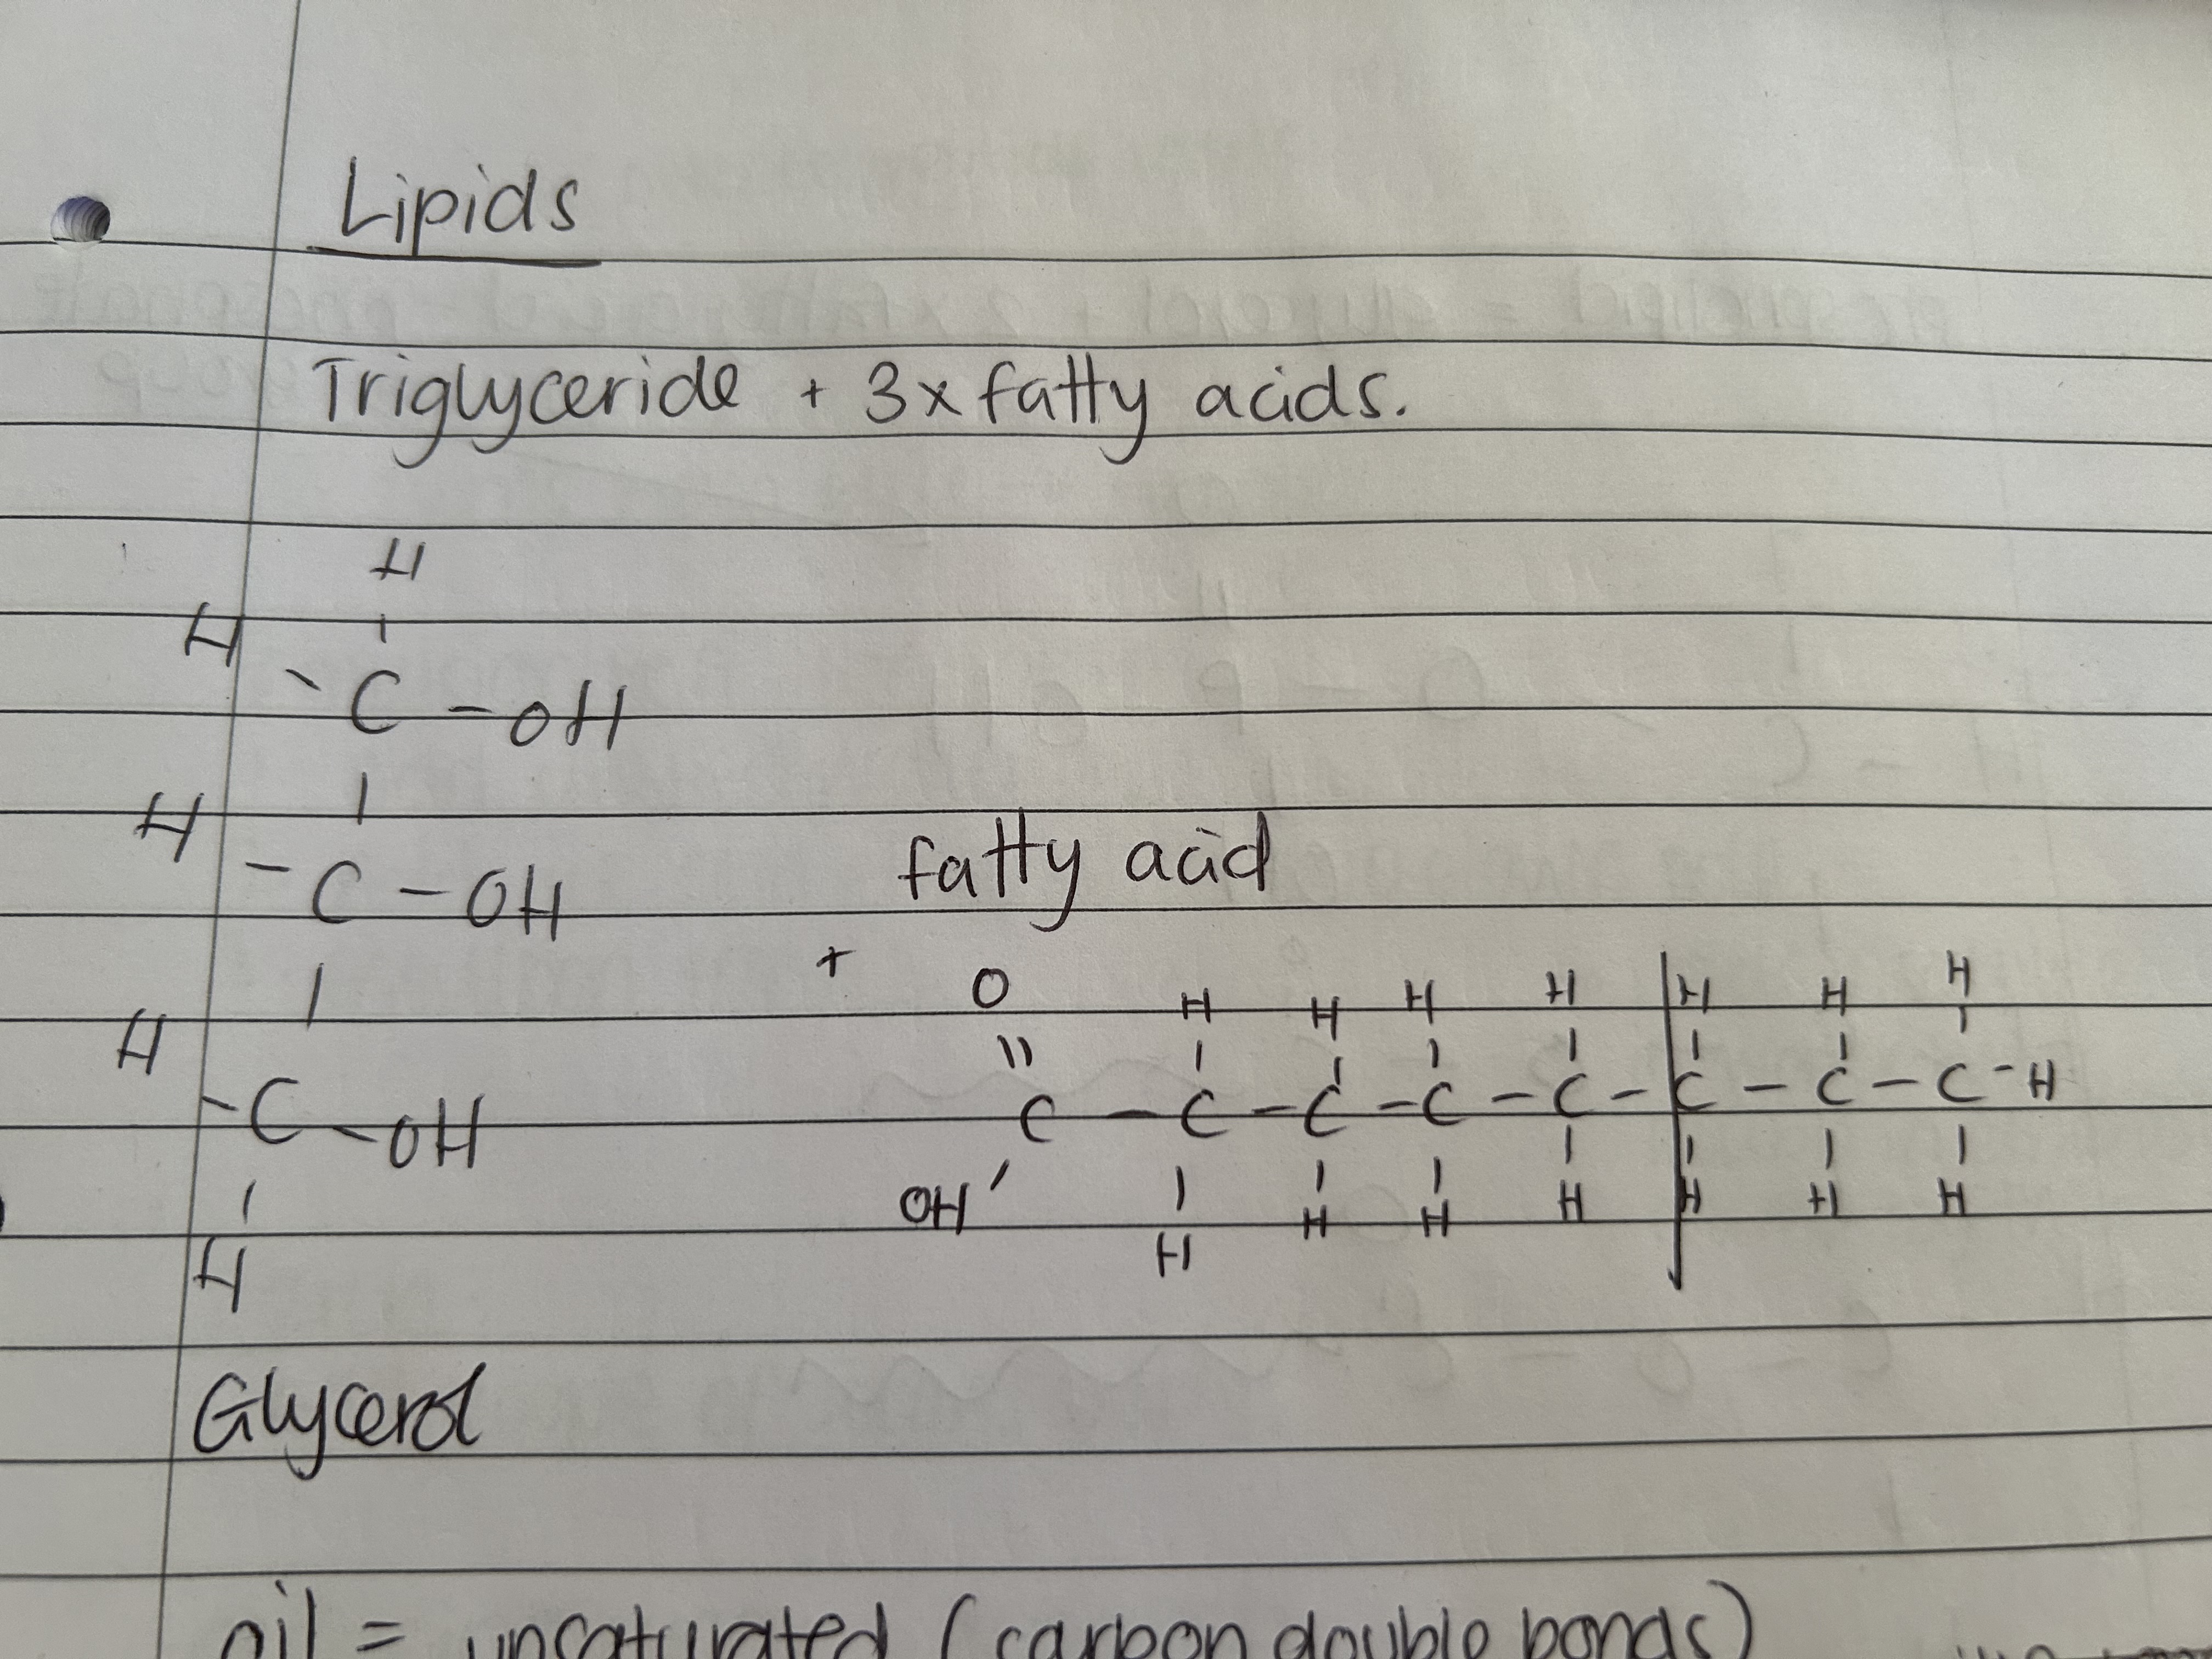 Lipids
Triglyceride + 3x fatty acids.
H
H
C - OH
H
C - OH
fatty acid
+
O H H H H H H H
H
C - OH
C - C - C - C - C - C - C - C - H
OH H H H H H H H
H
Glycerol
oil = unsaturated (carbon double bonds)